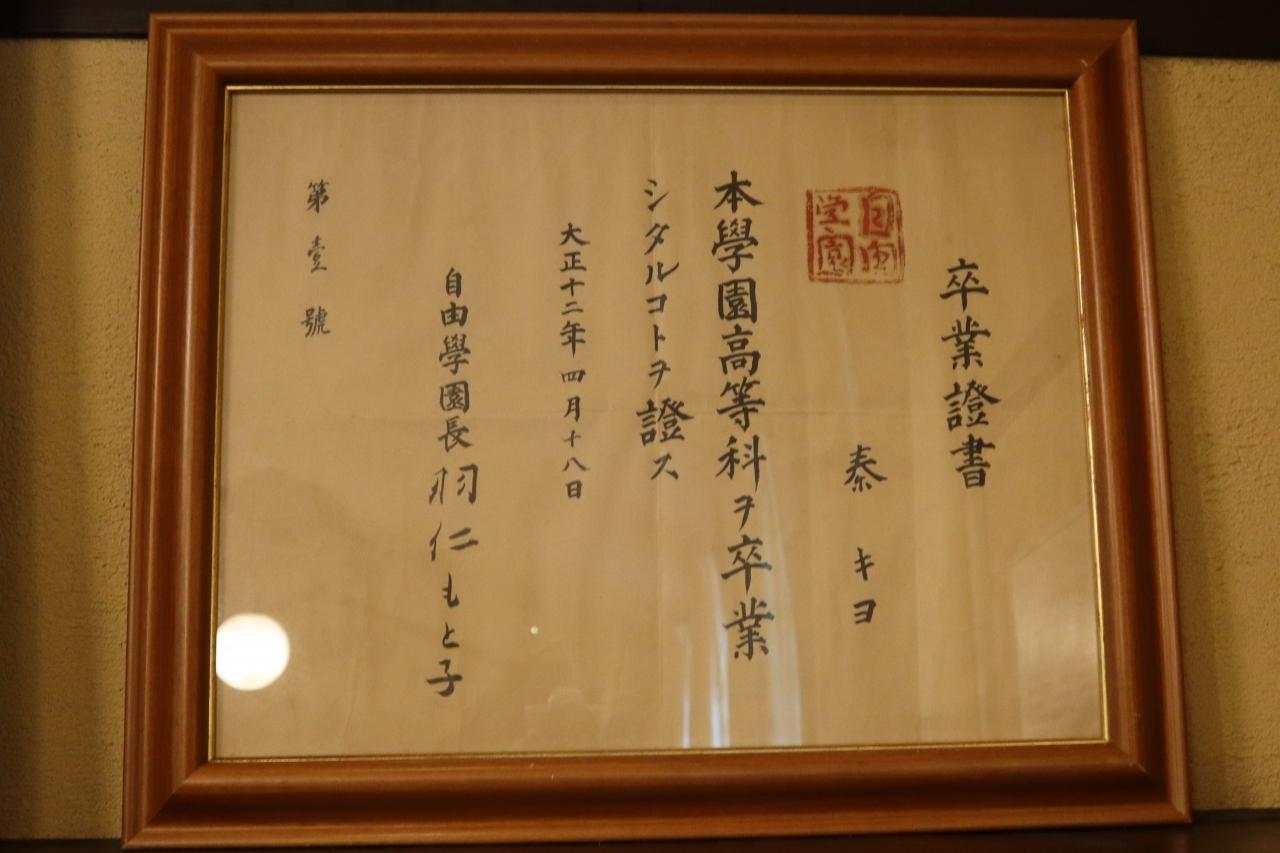 卒業證書
秦キヨ
自由学園
本學園高等科ヲ卒業
シタルコトヲ證ス
大正十二年四月十八日
自由學園長 羽仁もと子
第壹號